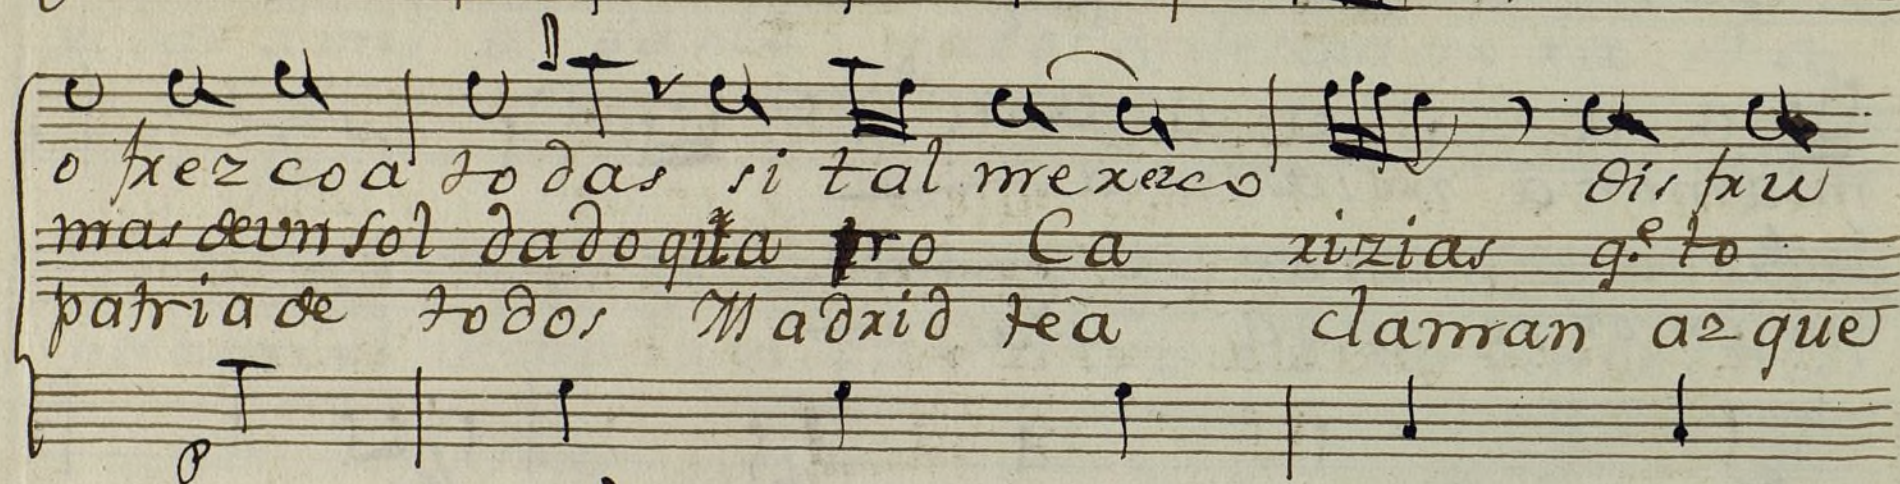 o frez co a to das si tal merezco disfru
mas de vn sol dado gita pro Ca rizias q.e to
patria de todos Madrid te a claman az que
P